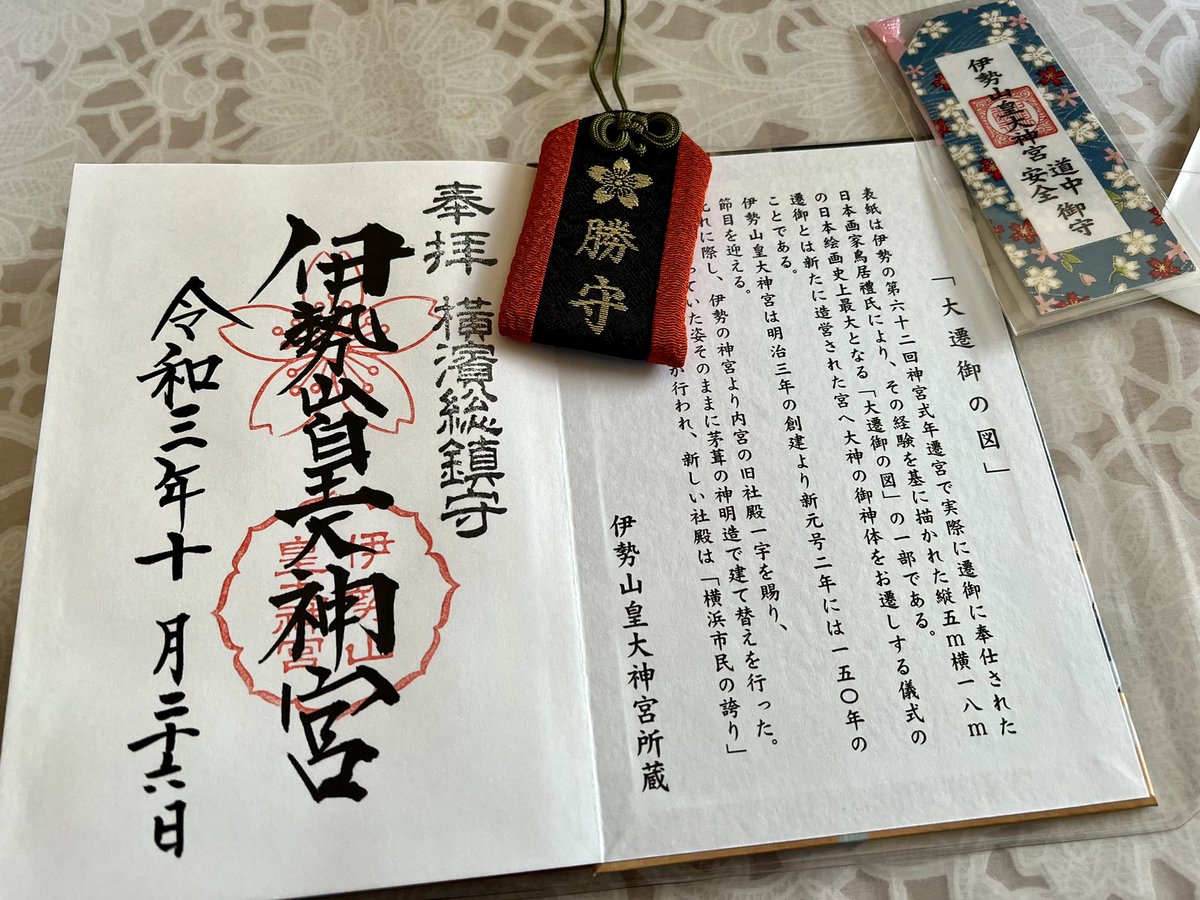 「大遷御の図」
表紙は伊勢の第六十二回神宮式年遷宮で実際に遷御に奉仕された
日本画家鳥居禮氏により、その経験を基に描かれた縦五m横一八m
の日本絵画史上最大となる「大遷御の図」の一部である。
遷御とは新たに造営された宮へ大神の御神体をお遷しする儀式の
ことである。
伊勢山皇大神宮は明治三年の創建より新元号二年には一五〇年の
節目を迎える。
これに際し、伊勢の神宮より内宮の旧社殿一宇を賜り、
っていた姿そのままに茅葺の神明造で建て替えを行った。
が行われ、新しい社殿は「横浜市民の誇り」
伊勢山皇大神宮所蔵
奉拝 横濱総鎮守
伊勢山皇大神宮
令和三年十月二十六日
伊勢山
皇大神宮
勝守
伊勢山皇大神宮 道中安全 御守